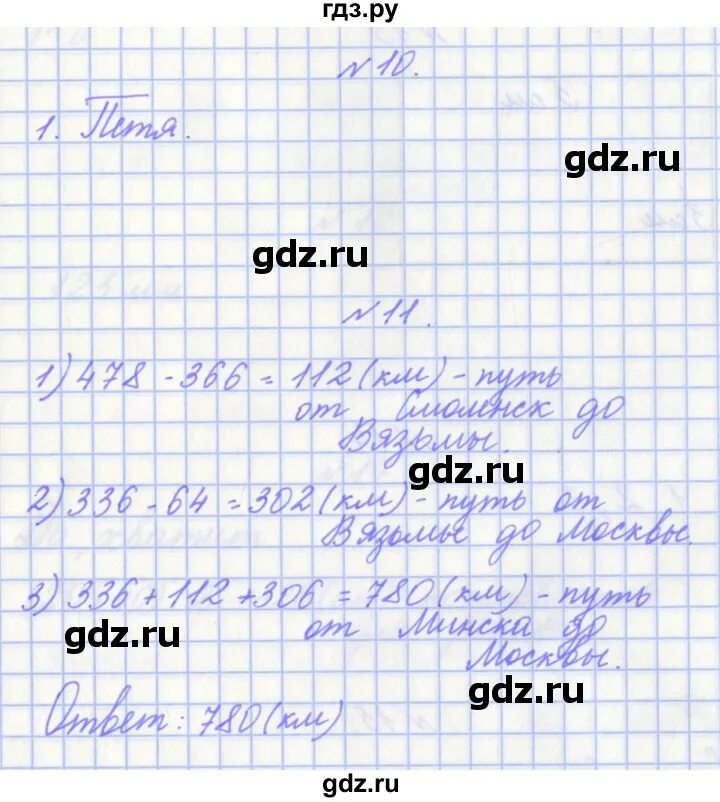 гдз.ру
№10.
1. Петя.
gdz.ru
gdz.ru
№11.
1) 478 - 366 = 112 (км) - путь
от Смоленск до
Вязьмы.
gdz.ru
2) 336 - 64 = 302 (км) - путь от
Вязьмы до Москвы.
3) 336 + 112 + 306 = 780 (км) - путь
gdz.ru
от Минска до
Москвы.
gdz.ru
Ответ: 780 (км)
gdz.ru